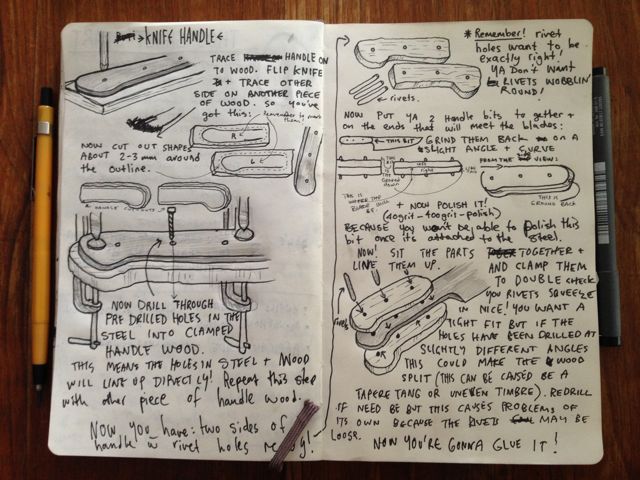 KNIFE HANDLE
TRACE HANDLE ON
TO WOOD. FLIP KNIFE
+ TRACE OTHER
SIDE ON ANOTHER PIECE
OF WOOD. SO YOU'VE
got THIS:
NOW CUT OUT SHAPES
ABOUT 2-3mm around
the outline.
R
L
HANDLE CUT OUTS
NOW DRILL THROUGH
PRE DRILLED HOLES IN THE
STEEL INTO CLAMPED
HANDLE WOOD.
THIS MEANS THE HOLES IN STEEL + WOOD
WILL LINE UP DIRECTLY! Repeat this step
with other piece of handle wood.
NOW YOU HAVE: two sides of
handle w rivet holes ready!
* Remember! rivet
holes want to be
exactly right,
YA Don't Want
RIVETS WOBBLIN'
ROUND!
rivets.
NOW PUT YA 2 Handle bits to gether +
on the ends that will meet the blades:
THIS BIT
GRIND THEM BACK ON A
SLIGHT ANGLE + CURVE
FROM THE VIEW:
THIS IS
GROUND BACK
+ NOW POLISH IT!
(40grit - 400grit - polish)
BECAUSE YOU WON'T BE able to polish this
bit once its attached to the steel.
NOW! SIT THE PARTS TOGETHER +
LINE THEM UP.
AND CLAMP THEM
TO DOUBLE check
YOU RIVETS SQUEEZE
IN NICE! YOU WANT A
TIGHT FIT BUT IF THE
HOLES HAVE BEEN DRILLED AT
SLIGHTLY DIFFERENT ANGLES
THIS COULD MAKE THE WOOD
SPLIT (THIS CAN BE CAUSED BE A
TAPERE TANG OR UNEVEN TIMBRE). REDRILL
IF NEED BE BUT THIS CAUSES PROBLEMS OF
ITS OWN BECAUSE THE RIVETS MAY BE
LOOSE.
NOW YOU'RE GONNA GLUE IT!